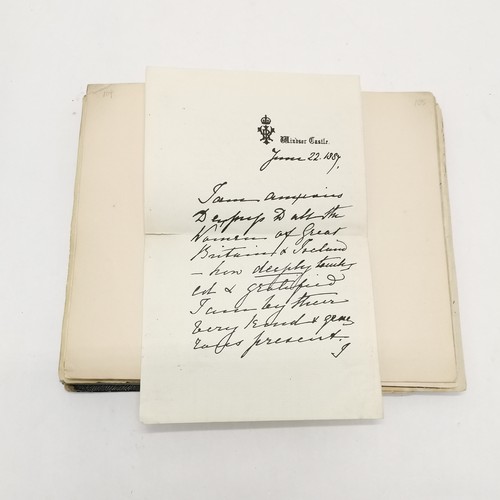 Windsor Castle.
June 22. 1887.
I am anxious
to express to all the
Women of Great
Britain & Ireland
– how deeply touch
ed & gratified
I am by their
very kind & gene
rous present. I